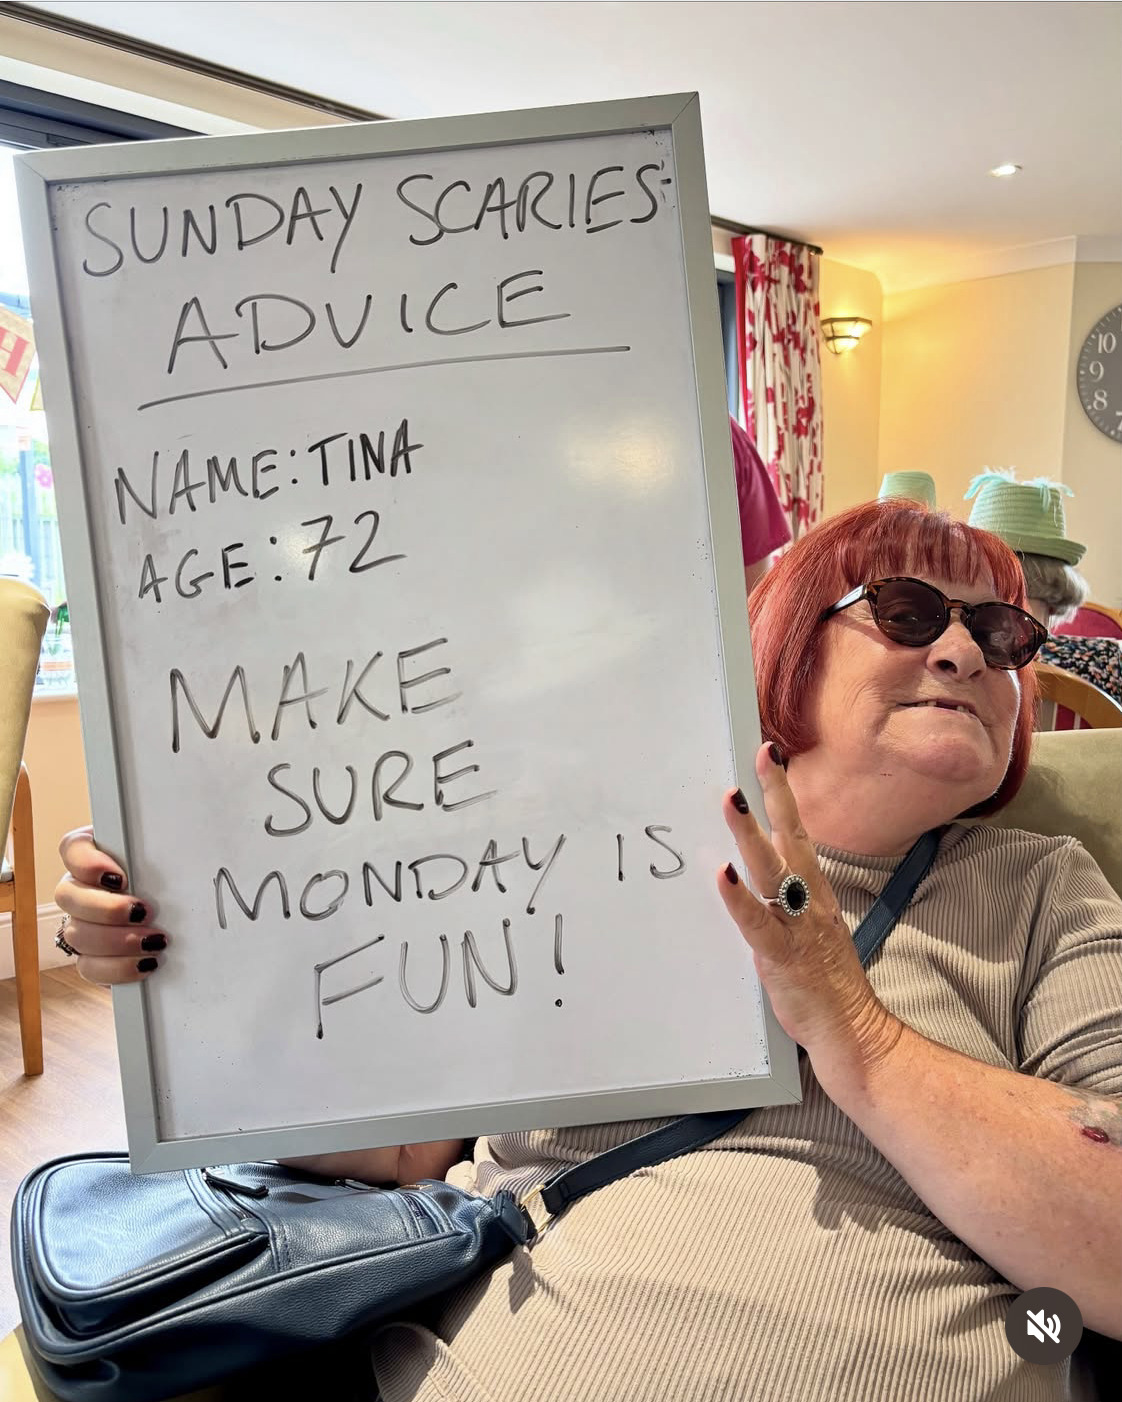 SUNDAY SCARIES
ADVICE
NAME: TINA
AGE: 72
MAKE
SURE
MONDAY IS
FUN!
H
10
9
8